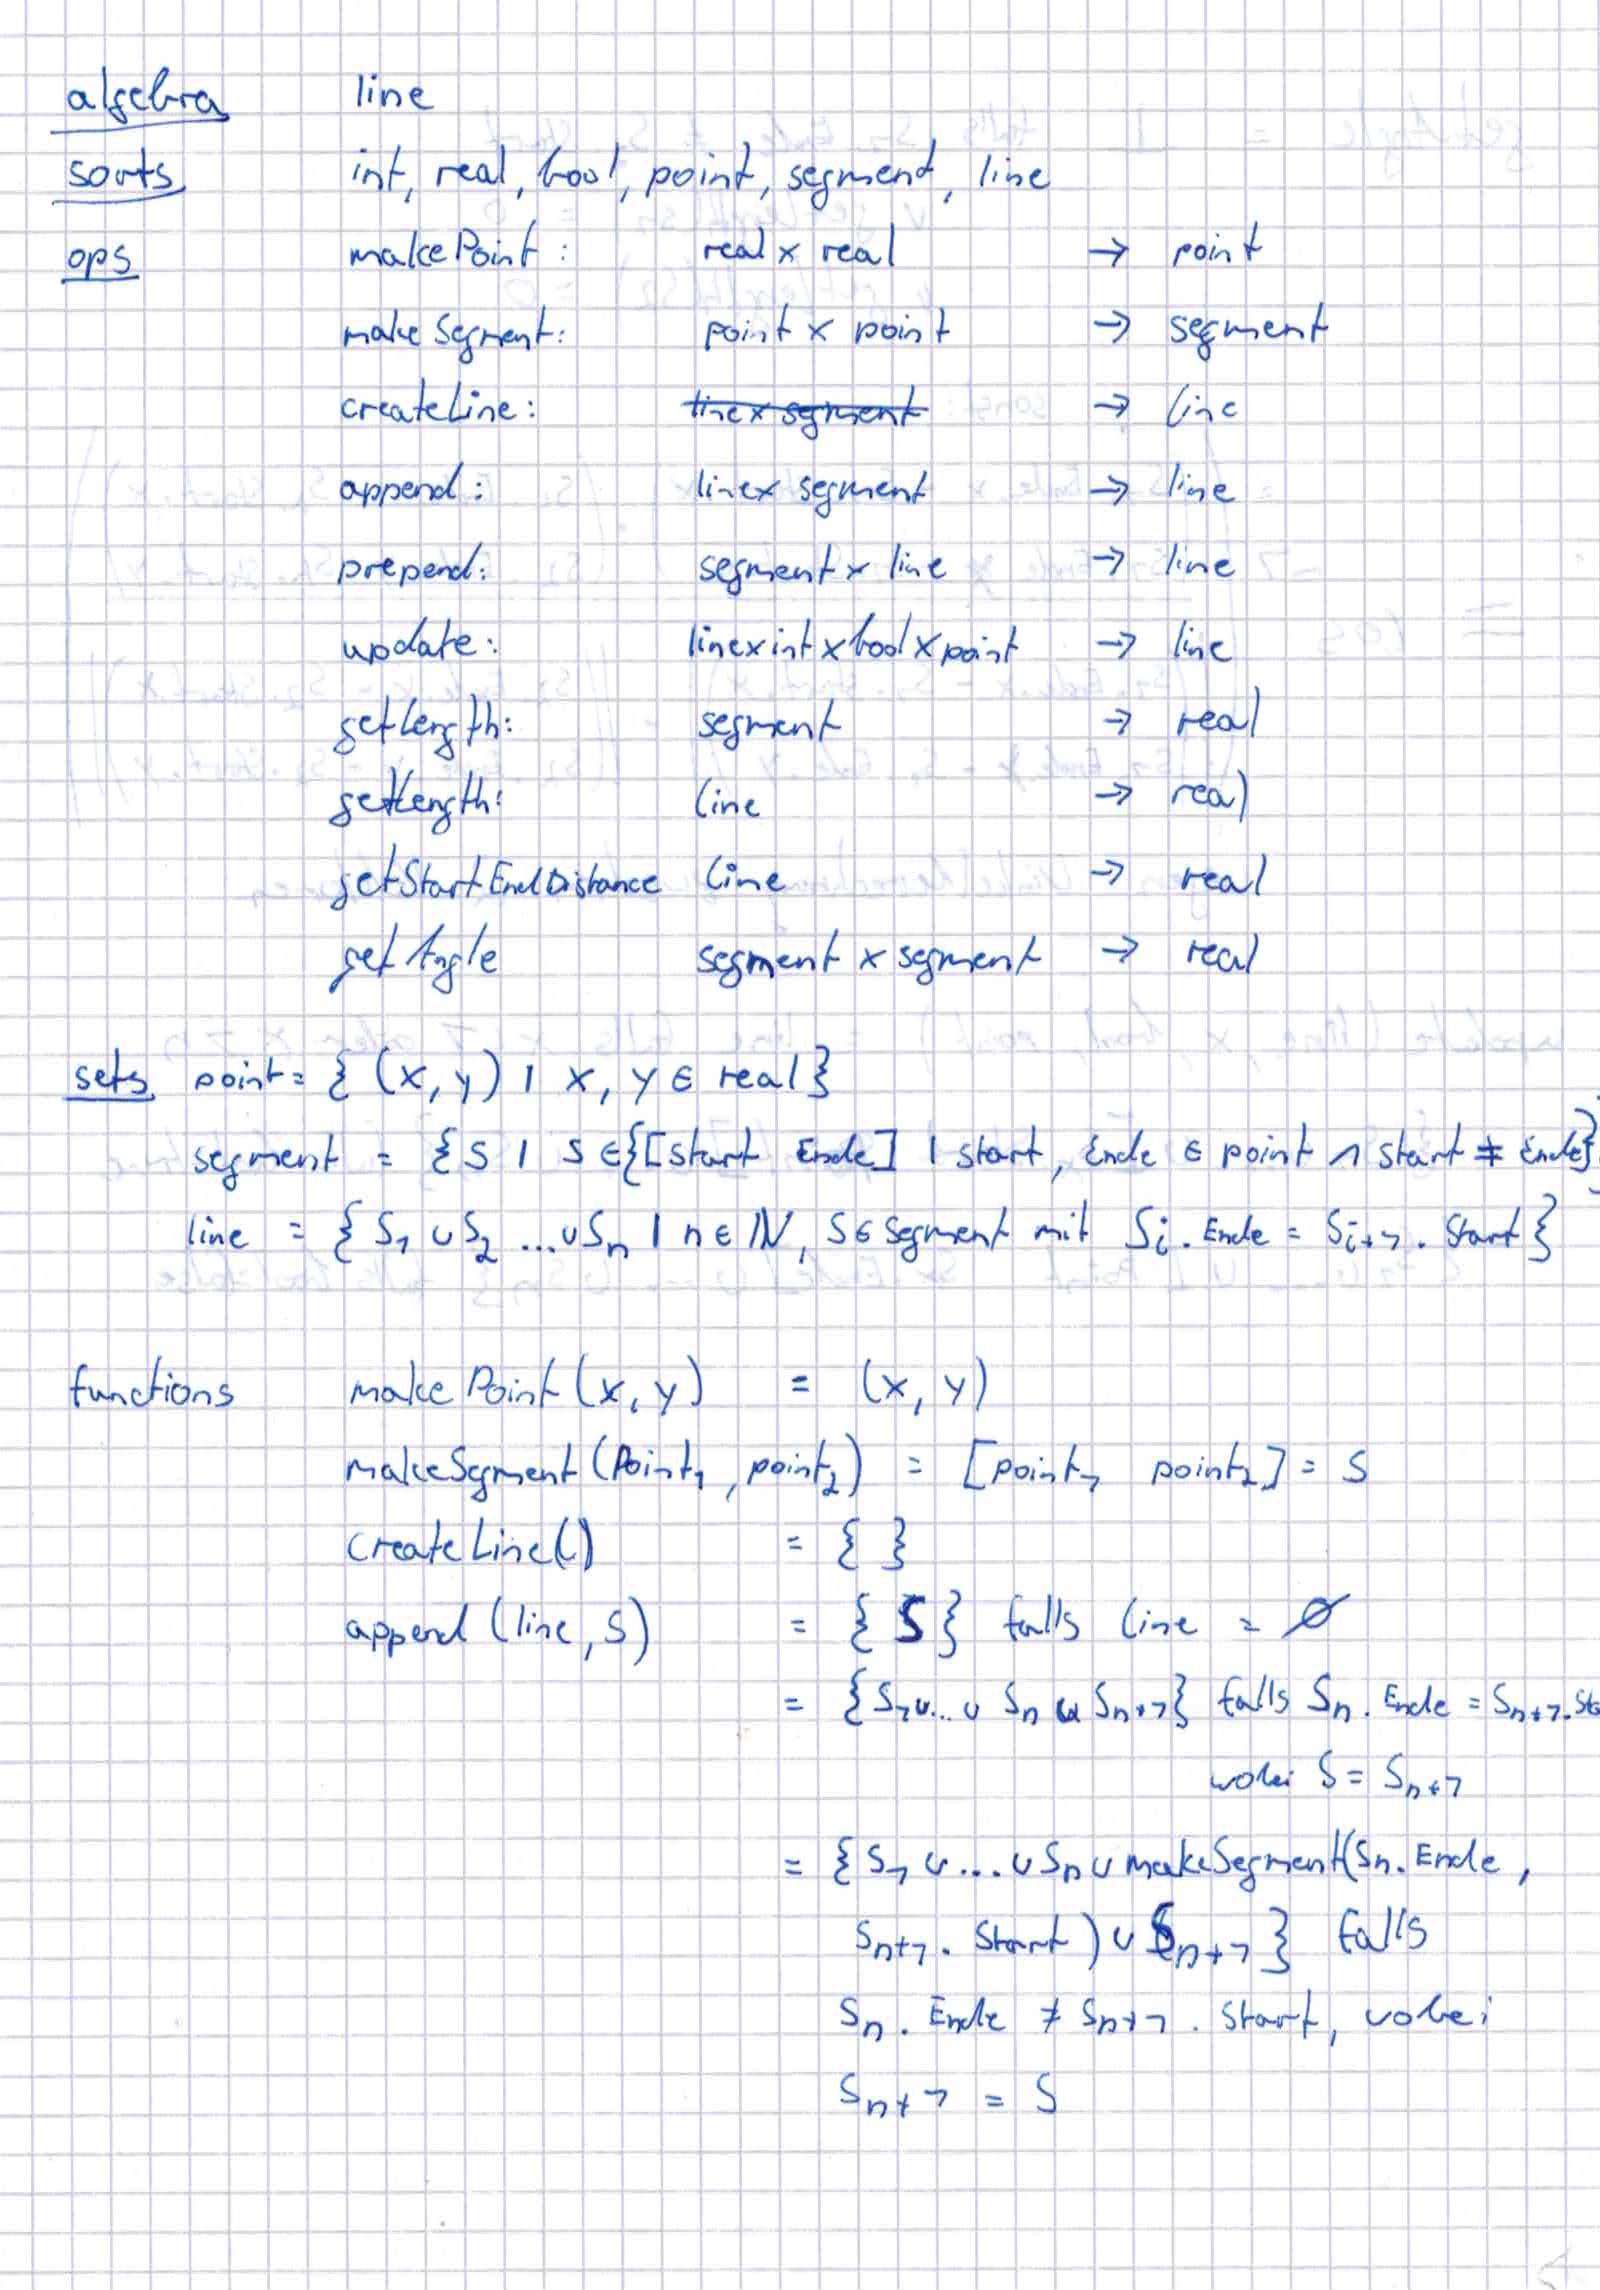 algebra line
sorts int, real, bool, point, segment, line
ops makePoint: real x real → point
makeSegment: point x point → segment
createLine: line x segment → line
append: line x segment → line
prepend: segment x line → line
update: line x int x bool x point → line
getLength: segment → real
getLength: line → real
getStartEndDistance line → real
getAngle segment x segment → real
sets point = { (x, y) | x, y ∈ real }
segment = { S | S ∈ {[Start Ende] | Start, Ende ∈ point ∧ Start ≠ Ende}}
line = { S1 ∪ S2 ... ∪ Sn | n ∈ ℕ, S ∈ Segment mit Si.Ende = Si+1.Start }
functions makePoint(x, y) = (x, y)
makeSegment(Point1, point2) = [point1 point2] = S
createLine() = { }
append(line, S) = { S } falls line = ∅
= { S1 ∪ ... ∪ Sn ∪ Sn+1 } falls Sn.Ende = Sn+1.Sta
wobei S = Sn+1
= { S1 ∪ ... ∪ Sn ∪ makeSegment(Sn.Ende,
Sn+1.Start) ∪ Sn+1 } falls
Sn.Ende ≠ Sn+1.Start, wobei
Sn+1 = S